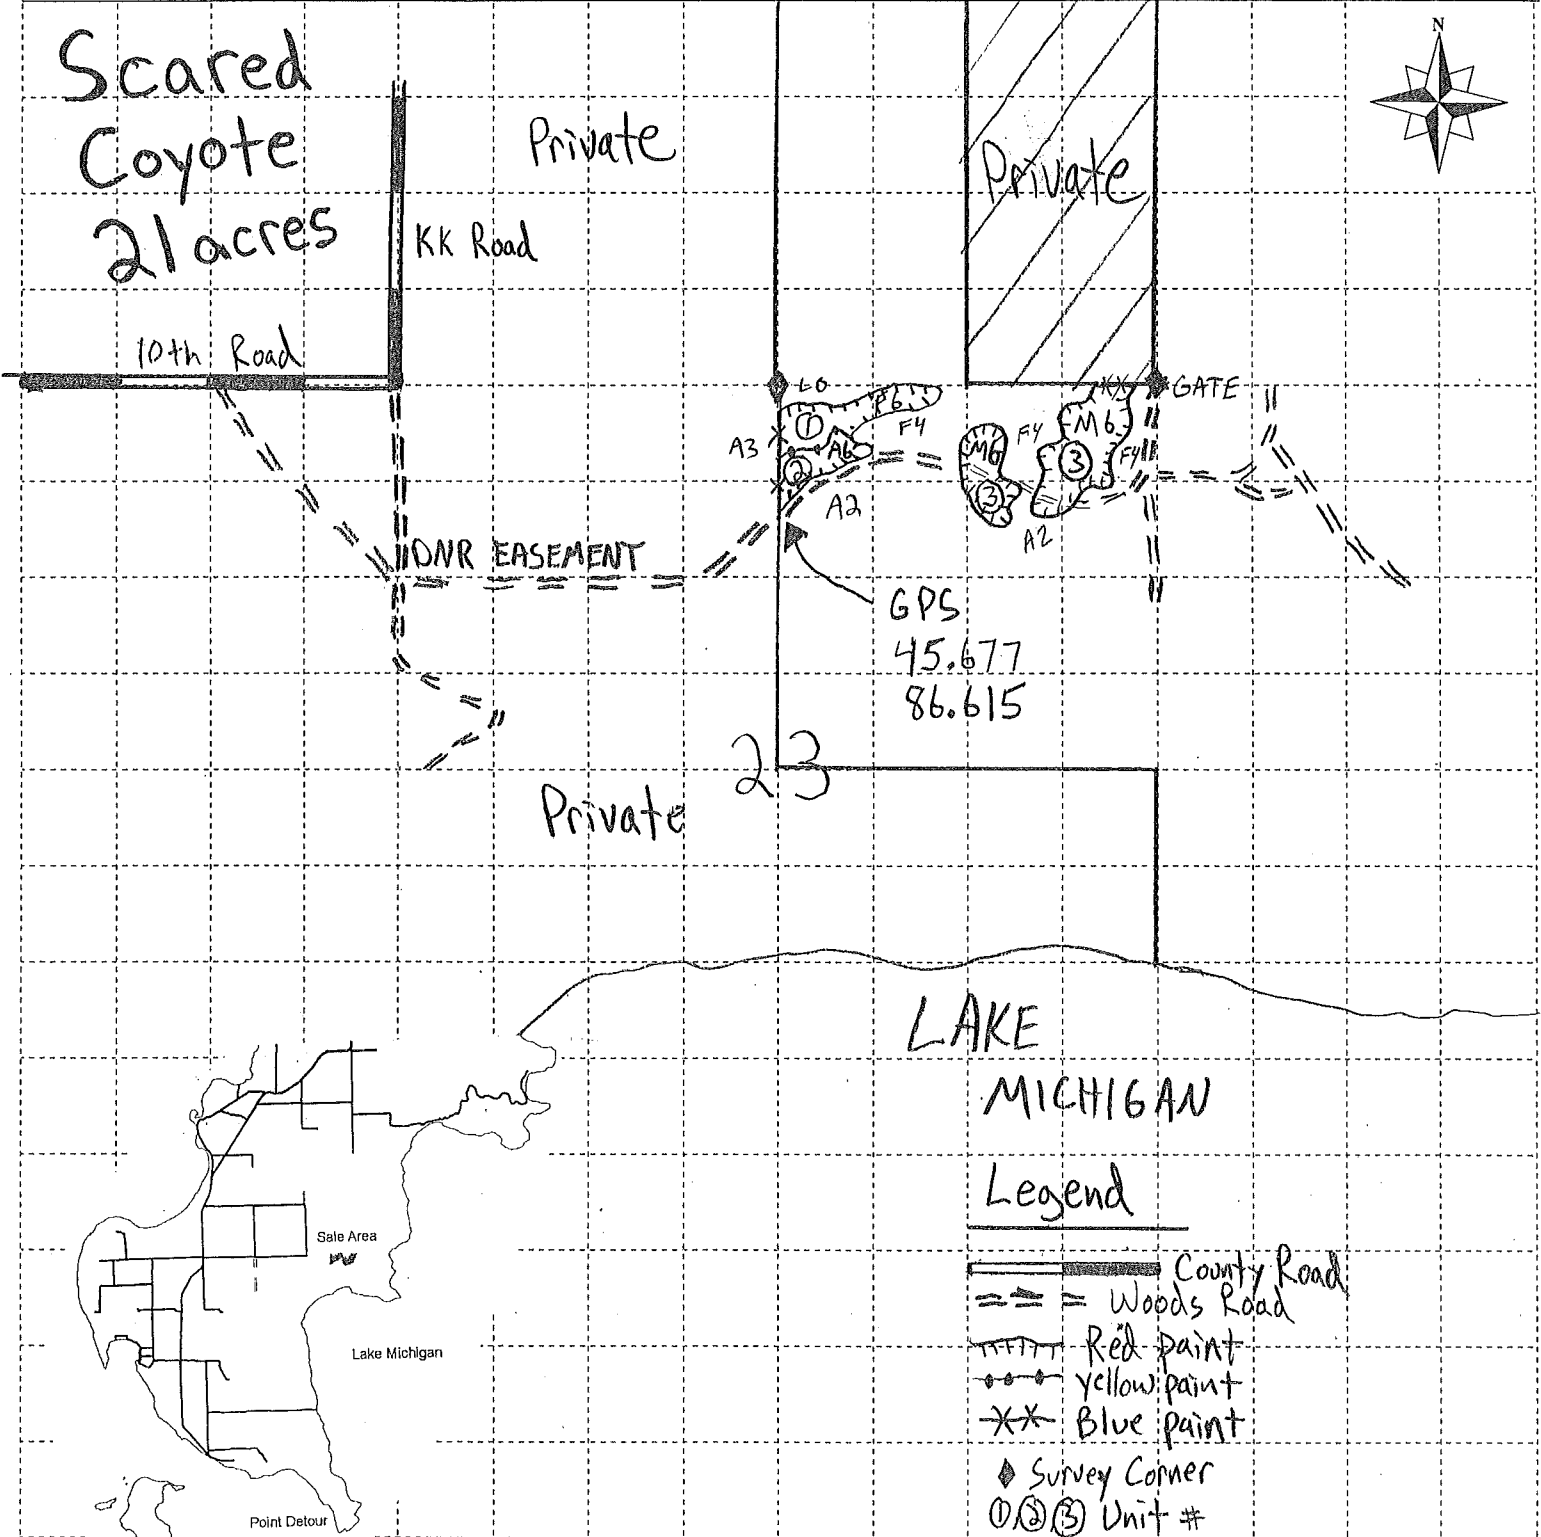 Scared
Coyote
21 acres
N
Private
Private
KK Road
10th Road
LO
GATE
P6
1
F4
A3
A6
2
M6
F4
M6
3
F4
3
A2
A2
DNR EASEMENT
GPS
45.677
86.615
23
Private
LAKE
MICHIGAN
Legend
County Road
Woods Road
Red paint
yellow paint
Blue paint
Survey Corner
1 2 3 Unit #
Sale Area
Lake Michigan
Point Detour